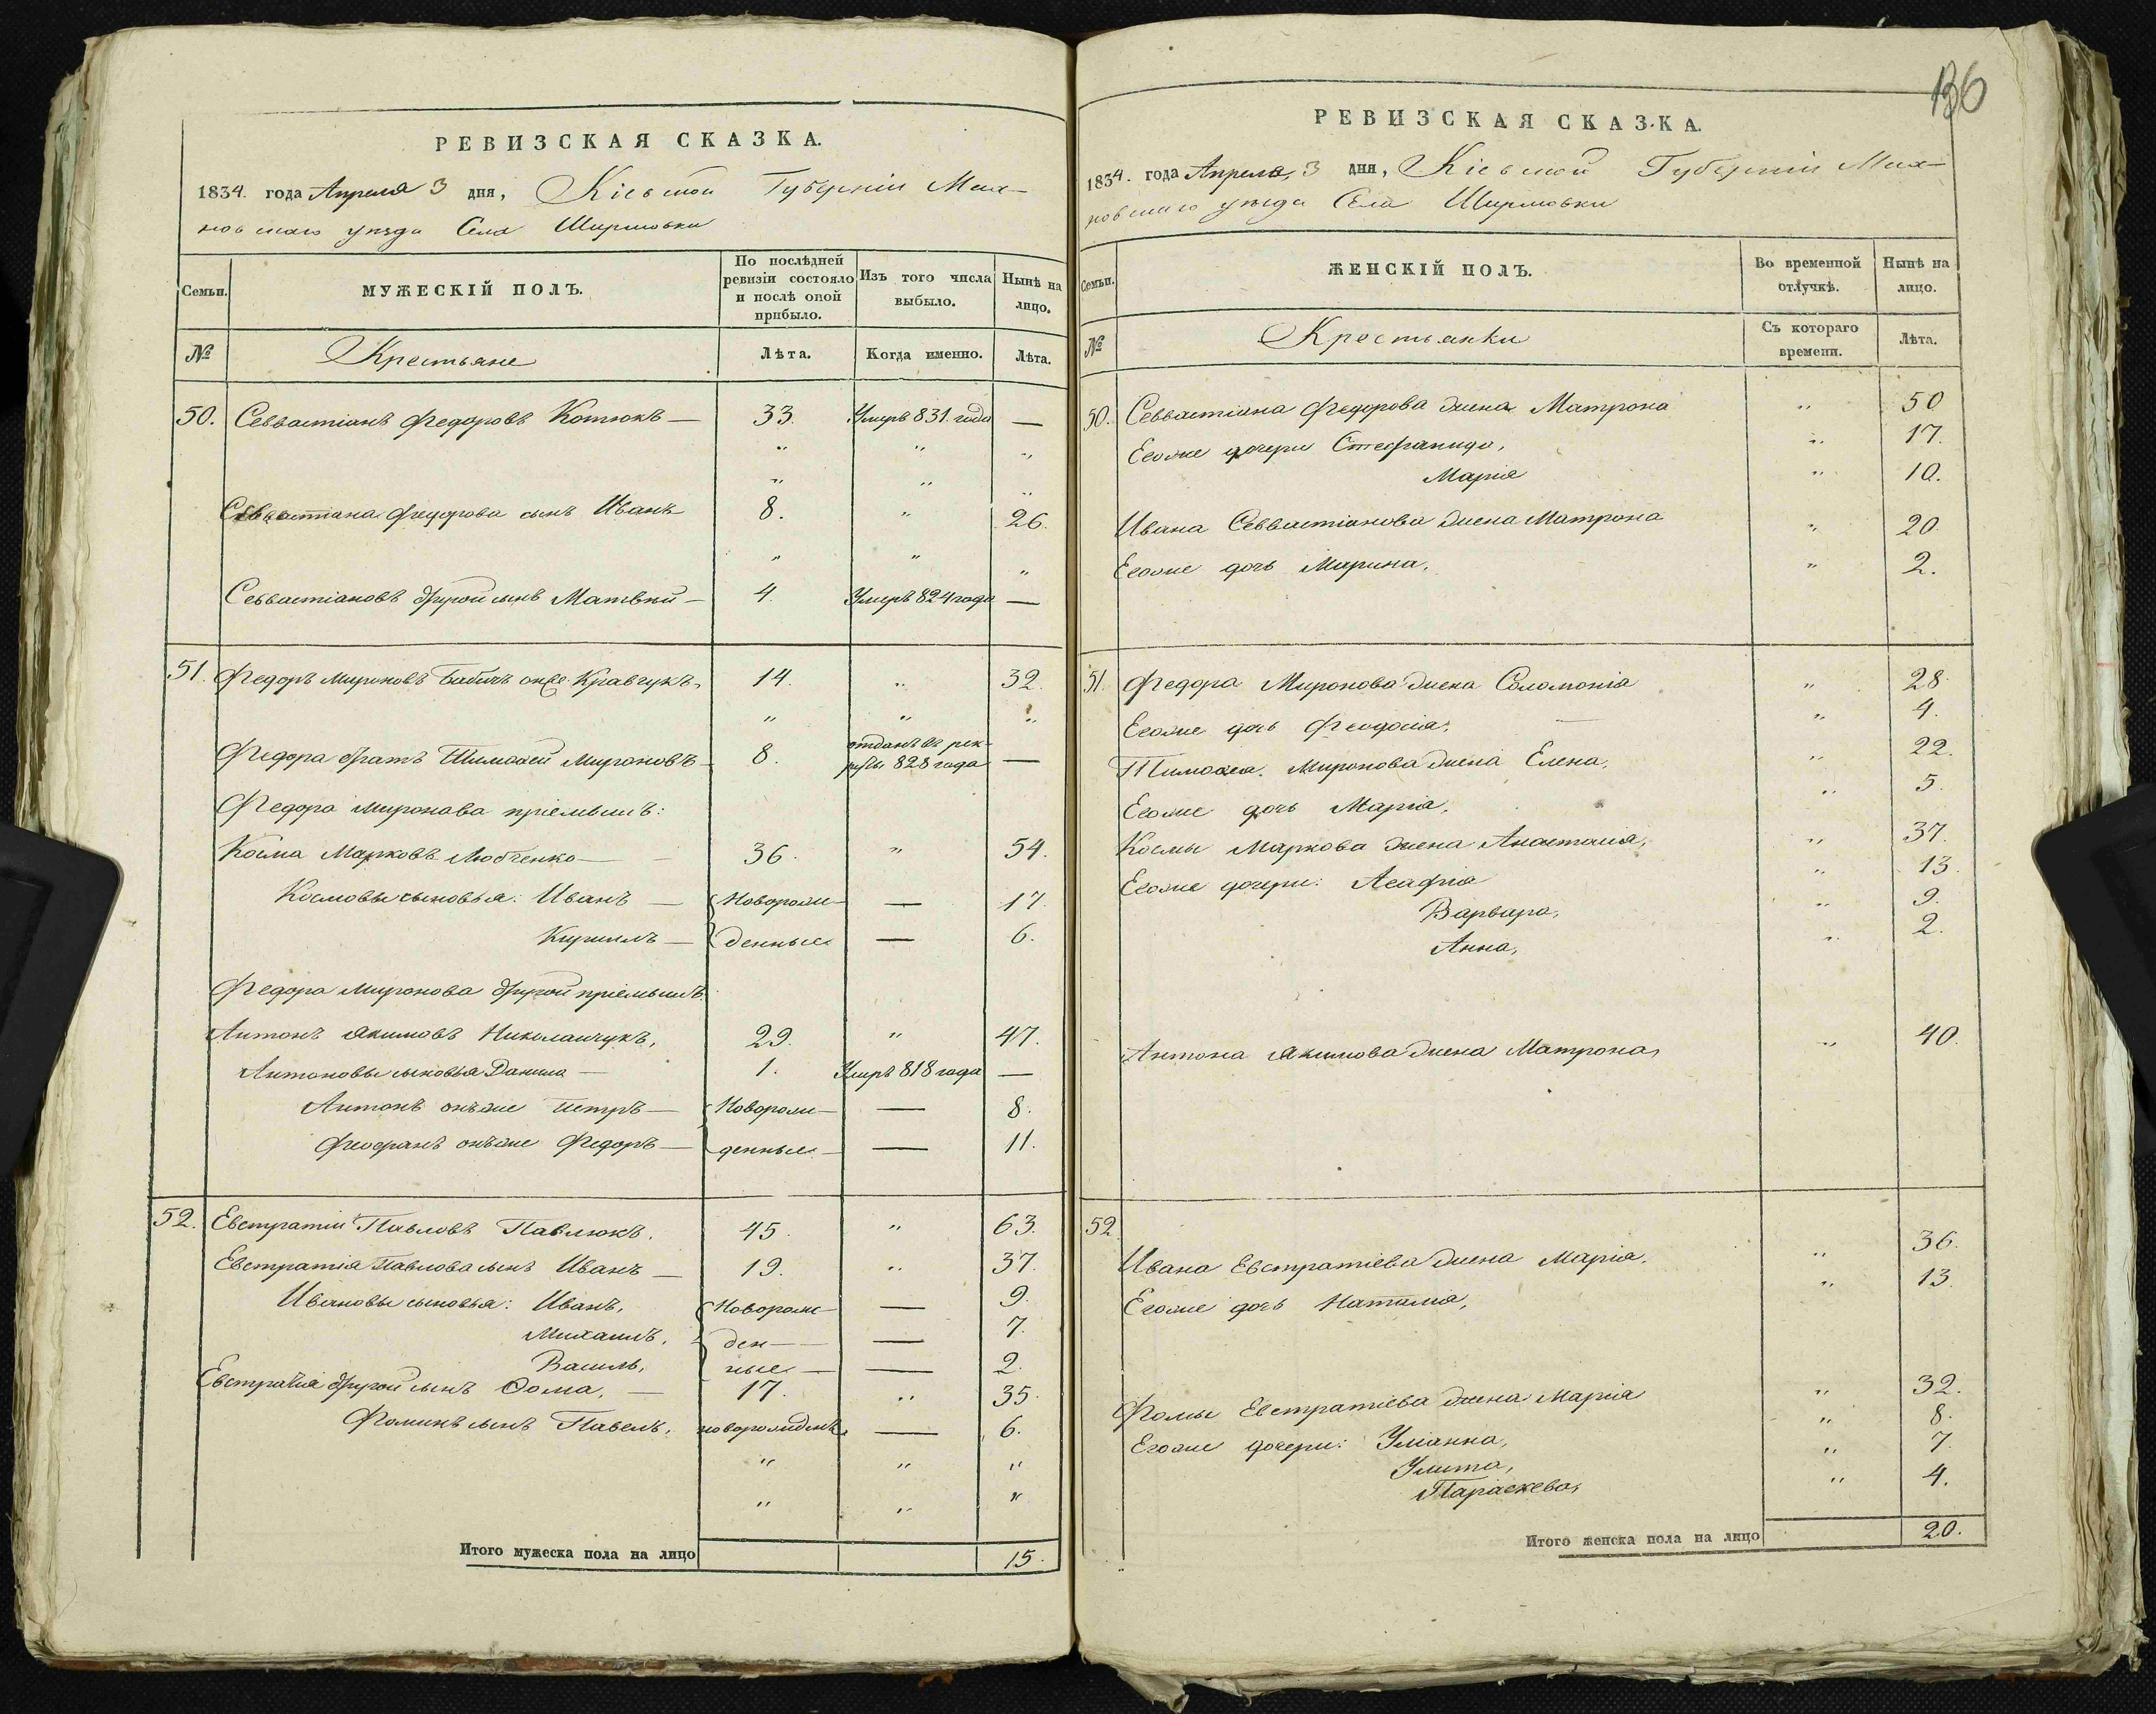 136
РЕВИЗСКАЯ СКАЗКА.
1834. года Апреля 3 дня, Кіевской Губерніи Мах-
новскаго уезда Села Ширмовки
Семьи. МУЖЕСКІЙ ПОЛЪ. По послѣдней ревизіи состояло и послѣ оной прибыло. Изъ того числа выбыло. Нынѣ на лицо.
№ Крестьяне Лѣта. Когда именно. Лѣта.
50. Севвастіанъ Федоровъ Котюкъ — 33. Умеръ 831. года —
" " "
" " "
Севвастіана Федорова сынъ Иванъ 8. " 26.
" " "
Севвастіановъ другой сынъ Матвей — 4. Умеръ 824 года —
51. Федоръ Мироновъ Бабичъ онже Кравчукъ, 14. " 32.
" " "
Федора братъ Тимофей Мироновъ — 8. отданъ въ рек-
руты 828 года —
Федора Миронова пріемышъ:
Косма Марковъ Любченко — 36. " 54.
Космовы сыновья: Иванъ — Новорож- — 17.
Кирилъ — денные — 6.
Федора Миронова другой пріемышъ:
Антонъ Якимовъ Николайчукъ, 29. " 47.
Антоновы сыновья Данила — 1. Умеръ 818 года —
Антонъ онъже Петръ — Новорож- — 8.
Феофанъ онъже Федоръ — денные — 11.
52. Евстратій Павловъ Павлюкъ. 45. " 63.
Евстратія Павлова сынъ Иванъ — 19. " 37.
Ивановы сыновья: Иванъ, Новорож- — 9.
Михаилъ, ден — — 7.
Василь, ные — — 2.
Евстратія другой сынъ Фома, — 17. " 35.
Фоминъ сынъ Павелъ, новорожденъ — 6.
" " "
" " "
Итого мужеска пола на лицо 15.
РЕВИЗСКАЯ СКАЗКА.
1834. года Апреля 3 дня, Кіевской Губерніи Мах-
новскаго уезда Села Ширмовки
Семьи. ЖЕНСКІЙ ПОЛЪ. Во временной отлучкѣ. Нынѣ на лицо.
№ Крестьянки Съ котораго времени. Лѣта.
50. Севвастіана Федорова жена Матрона " 50
Егоже дочери Стефанида, " 17.
Марія " 10.
Ивана Севвастіанова жена Матрона " 20.
Егоже дочь Марина, " 2.
51. Федора Миронова жена Соломонія " 28.
Егоже дочь Феодосія, " 4.
Тимофея Миронова жена Елена, " 22.
Егоже дочь Марія, " 5.
Космы Маркова жена Анастасія, " 37.
Егоже дочери: Агафія " 13.
Варвара, " 9.
Анна, " 2.
Антона Якимова жена Матрона, " 40.
52
Ивана Евстратіева жена Марія, " 36.
Егоже дочь Наталія, " 13.
Фомы Евстратіева жена Марія " 32.
Егоже дочери: Уліанна, " 8.
Улита, " 7.
Параскева, " 4.
Итого женска пола на лицо 20.